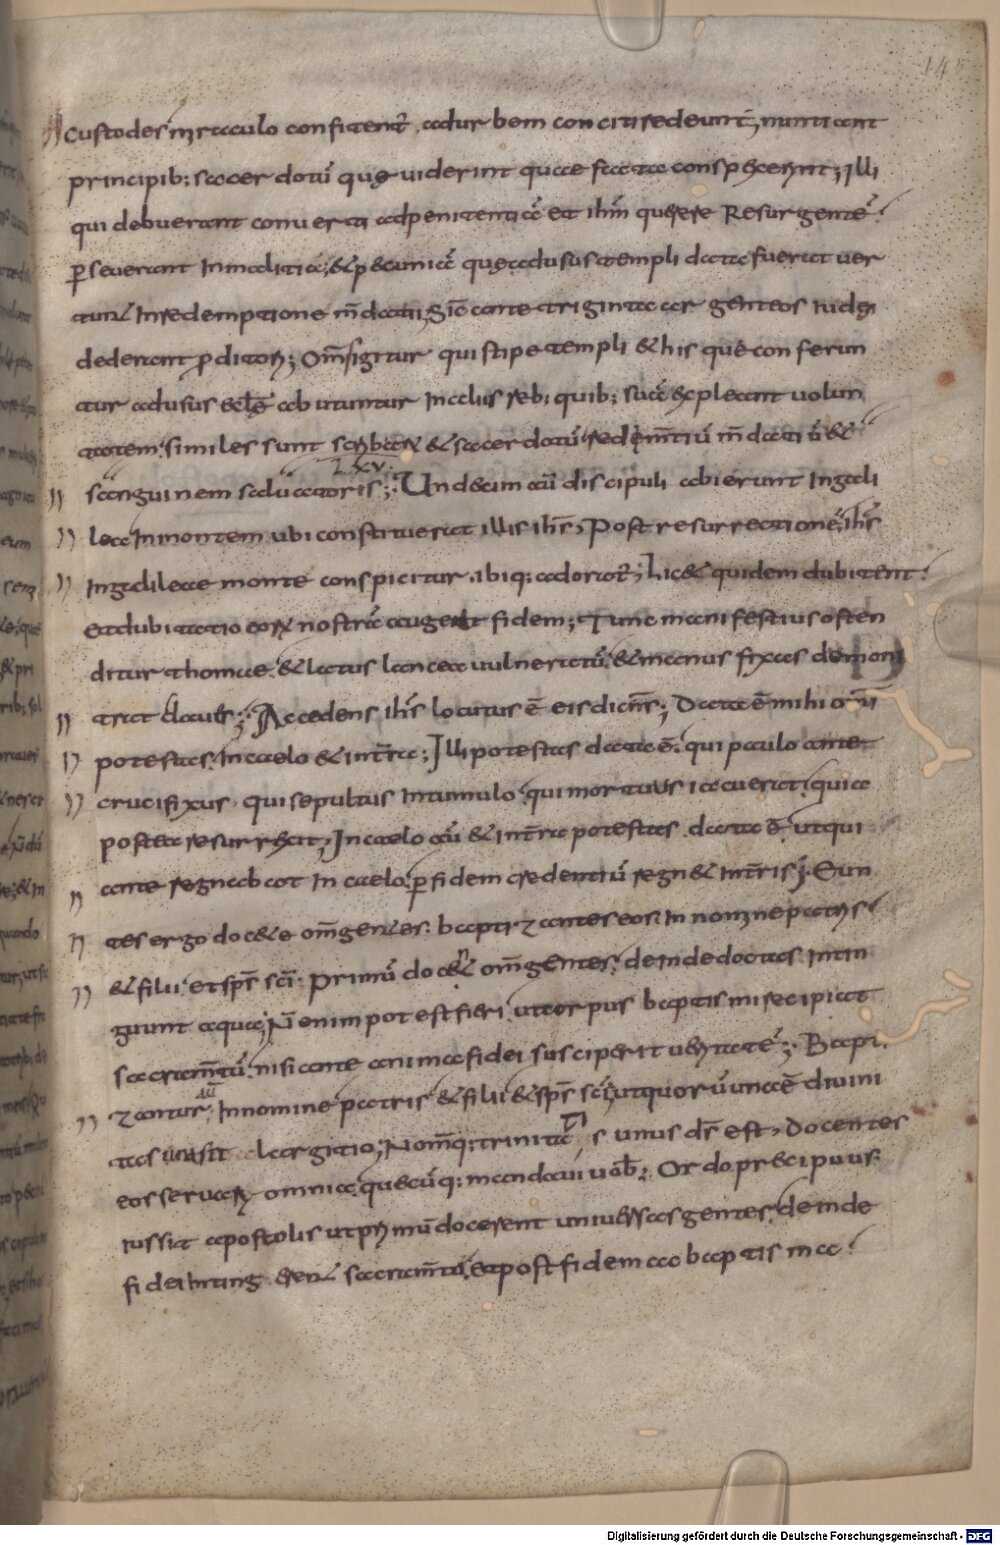 145
Custodes miraculo confitent̄ adur bem concitiredeunt, nuntiant
principib; sacer dotū quę uiderint quae facta conspexerint; illi
qui debuerant conuerti adpenitentiā et ihm̄ querere Resurgentē
p̱seuerant Inmalitia, & pecuniā quę adusus templi data fuerat uer
tunt Inredemptione m̄dacii, Sic̄ ante triginta argenteos iudę
dederant ꝓditori; Om̄s igitur qui stipe templi & his que conferun
tur adusus eccl̄ę abutuntur In aliis reb; quib; suā expleant uolun
tatem, similes sunt scribarū & sacerdotū redem̄tiū m̄daciū &
LXV
sanguinem saluatoris; Undecim aū discipuli abierunt Ingali
lea Inmontem ubi constituerat illis ihs̄; Post resurrectionē ihs̄
Ingalileae monte conspicitur. ibiq; adorat̄; Lic& quidem dubitent
& dubitatio eorū nostrā auget fidem; Tunc manifestius osten
ditur thomae & latus lancea uulneratū & manus fixas demons
trat clauis; Accedens ihs̄ locutus ē eis dicn̄s; Data ē mihi om̄s
potestas. In caelo & int̄ra; Illi potestas data ē. qui paulo ante
crucifixus. qui sepultus Intumulo. qui mortuus iacuerat. qui
postea resurrexit; In caelo aū & int̄ra potestas data ē. ut qui
ante regnabat In caelo. p̱ fidem credentiū regn& int̄ris; Eun
tes ergo doc&e om̄s gentes. baptizantes eos. In nomine patris
& filii. et sps̄ sci. Primū doc& om̄s gentes. deinde doctas Intin
guunt aqua; N̄ enim potest fieri ut corpus baptismi recipiat
sacram̄tū. nisi ante anima fidei susceperit ueritatē; Bapti
zantur aū Innomine patris & filii & sps̄ sci, ut quorū una ē diuini
tas una sit largitio; Nom̄q; trinitatis unus ds̄ est; Docentes
eos seruare omnia quecūq; mandaui uob̄; Ordo precipuus.
iussit apostolis ut primū docerent uniuersas gentes, deinde
fidei inting erent sacram̄to, & post fidem ac baptisma
Digitalisierung gefördert durch die Deutsche Forschungsgemeinschaft - DFG